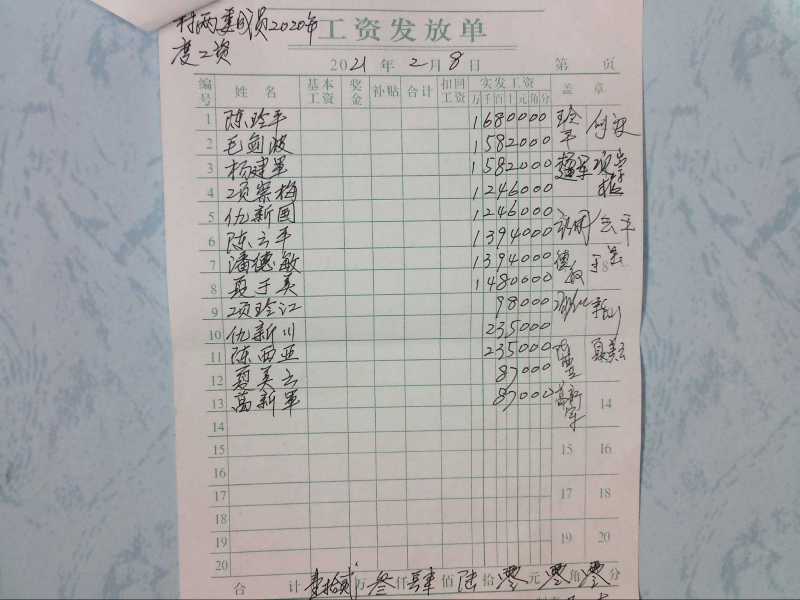 村两委成员2020年
度工资
工资发放单
2021年2月8日 第 页
编号 姓名 基本工资 奖金 补贴 合计 扣回工资 实发工资 盖章
万千百十元角分
1 陈玲平 1680000
2 毛剑波 1582000
3 杨建军 1582000
4 项寨梅 1246000
5 仇新国 1246000
6 陈云平 1394000
7 潘德敏 1394000
8 夏于英 1480000
9 项玲江 98000
10 仇新川 235000
11 陈西亚 235000
12 夏美云 87000
13 葛新军 87000 14
14
15 15 16
16
17 17 18
18
19 19 20
20
合计 壹拾贰万叁仟肆佰陆拾零元零角零分